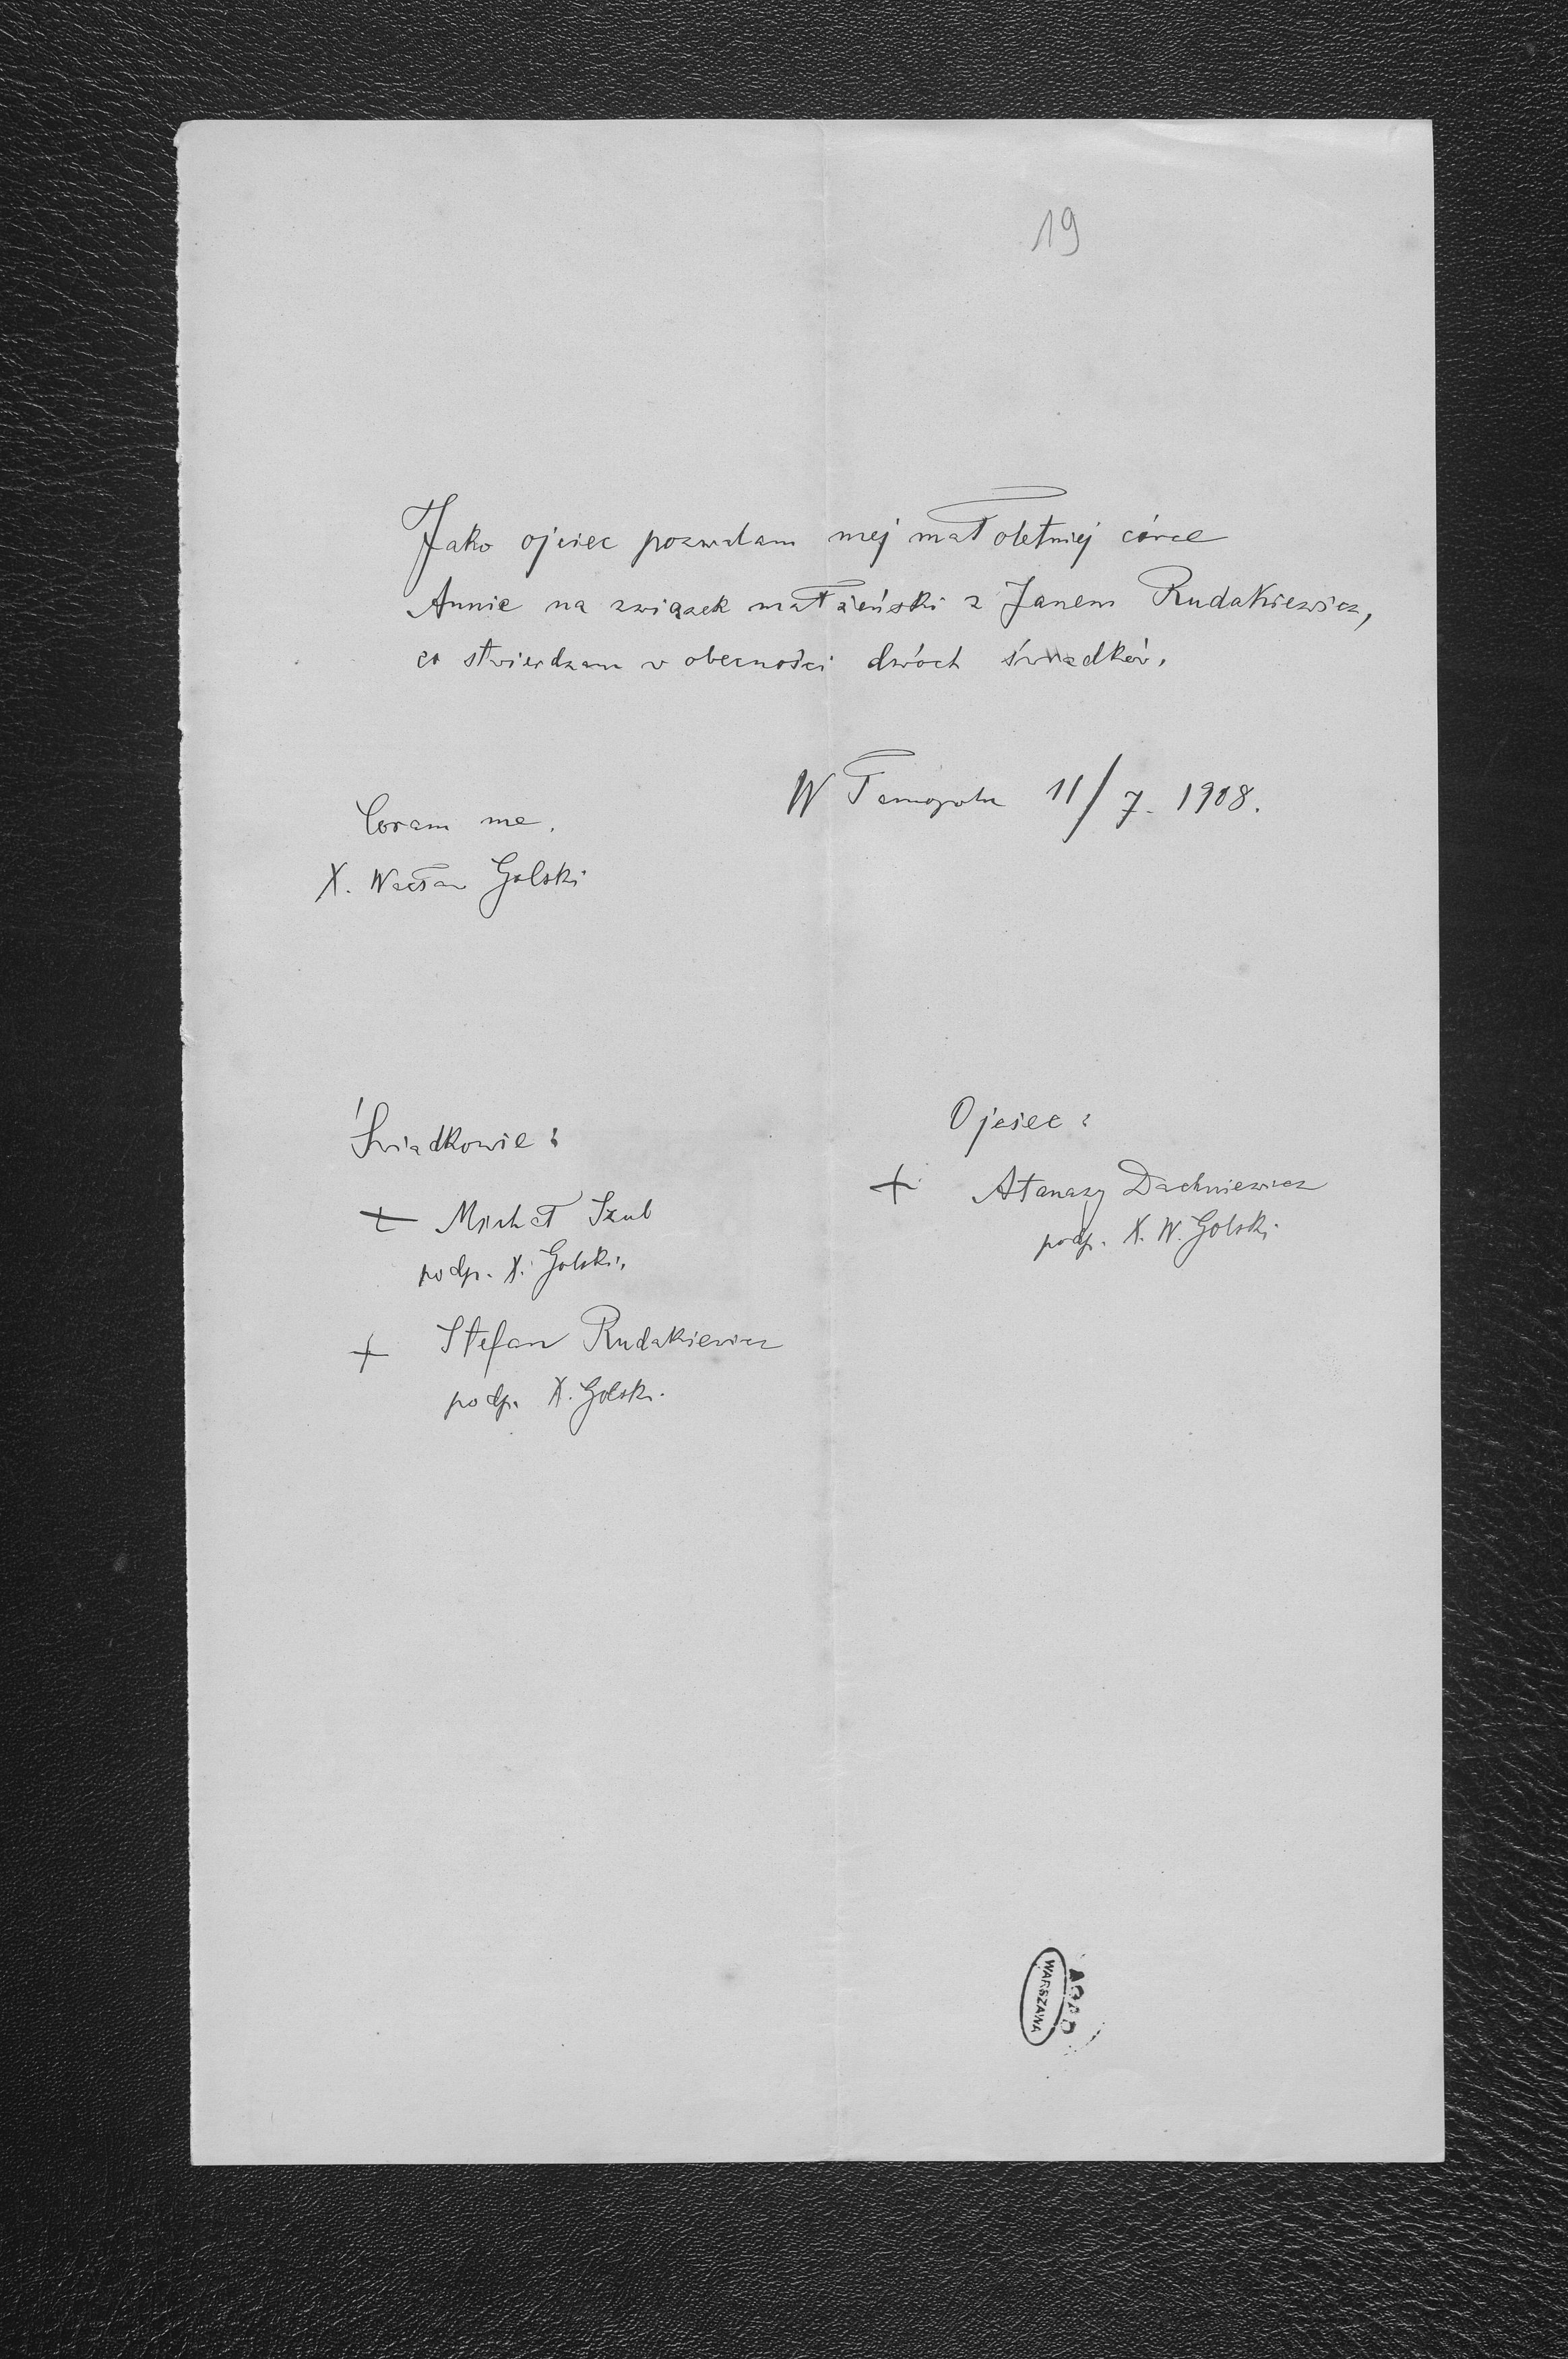 19
Jako ojciec pozwalam mej małoletniej córce
Annie na związek małżeński z Janem Rudakiewicz,
co stwierdzam w obecności dwóch świadków.
W Tarnopolu 11/7. 1908.
Coram me.
X. Wacław Golski
Świadkowie:
+ Michał Szub
podp. X. Golski.
+ Stefan Rudakiewicz
podp. X. Golski.
Ojciec:
+ Atanazy Dachniewicz
podp. X. W. Golski.
AGAD
WARSZAWA